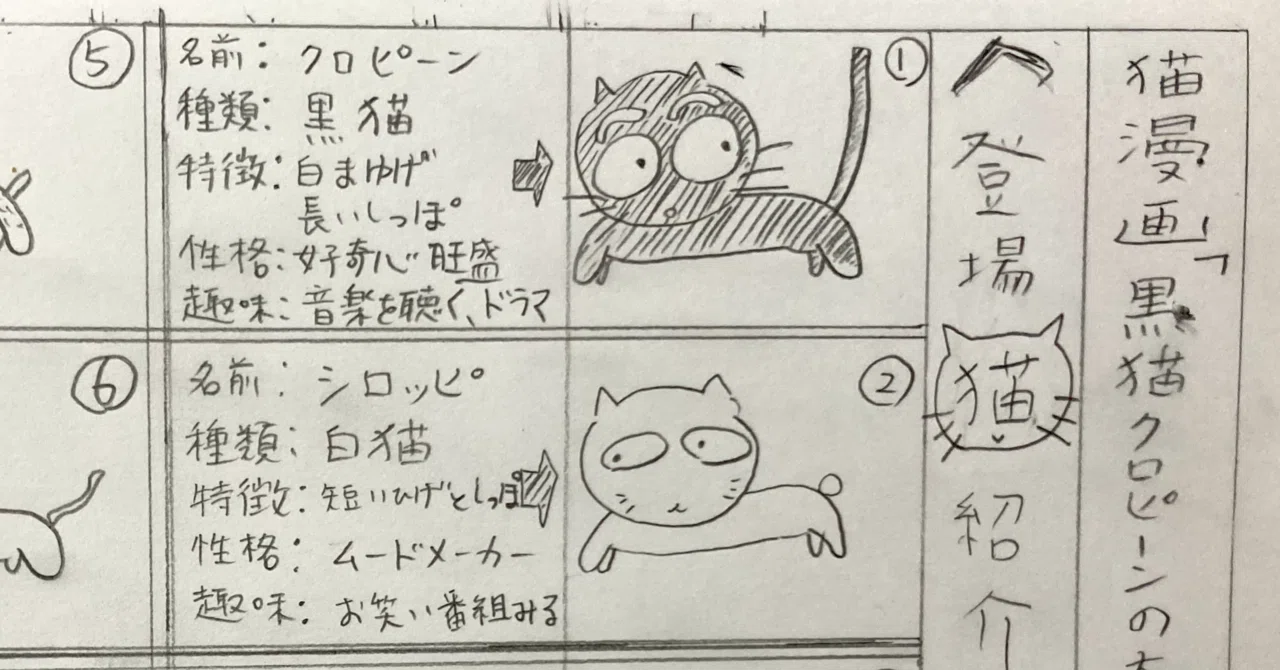 猫漫画「黒猫クロピーンの
〈登場猫紹介
①
名前：クロピーン
種類：黒猫
特徴：白まゆげ
長いしっぽ
性格：好奇心旺盛
趣味：音楽を聴く、ドラマ
②
名前：シロッピ
種類：白猫
特徴：短いひげとしっぽ
性格：ムードメーカー
趣味：お笑い番組みる
⑤
⑥